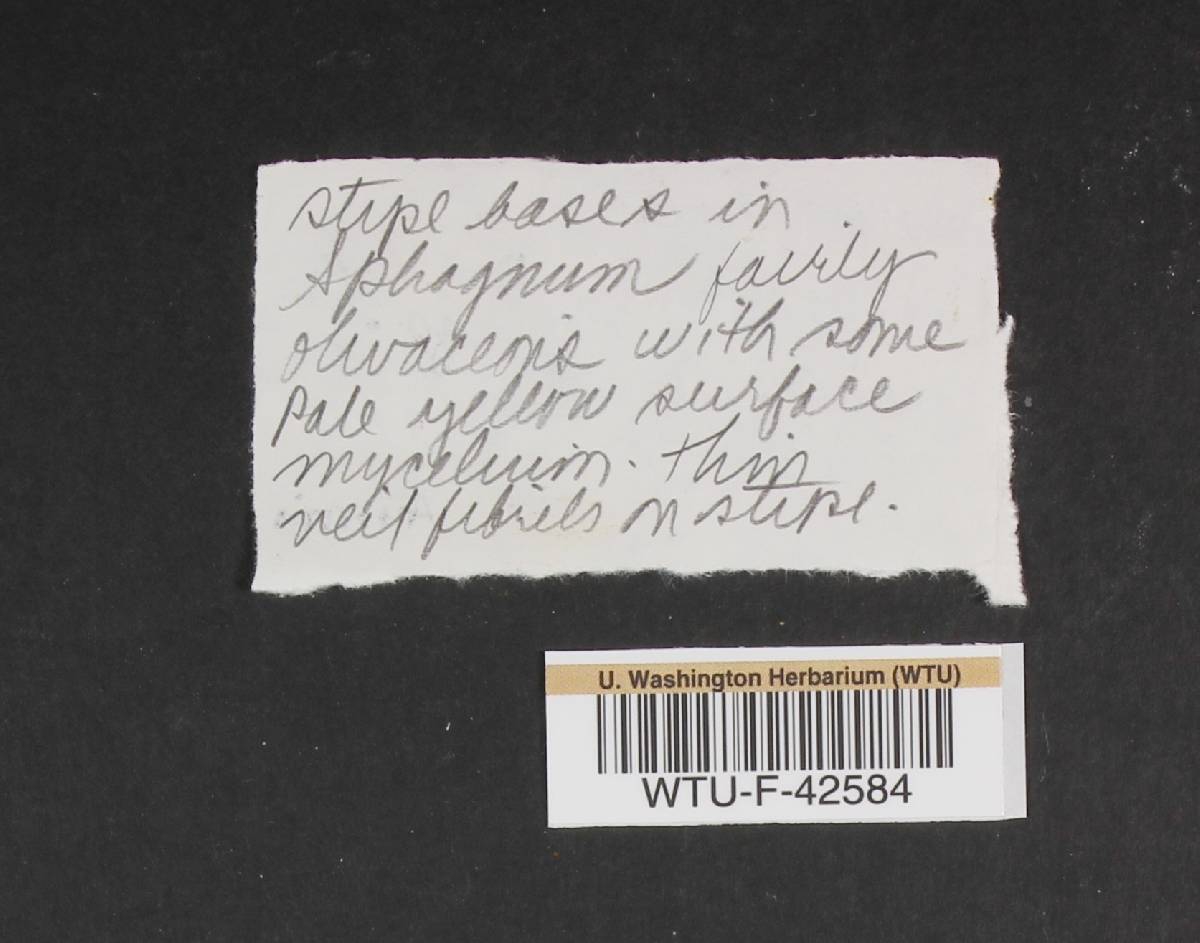 stipe bases in
Sphagnum fairly
olivaceous with some
pale yellow surface
mycelium. Thin
veil fibrils on stipe.
U. Washington Herbarium (WTU)
WTU-F-42584